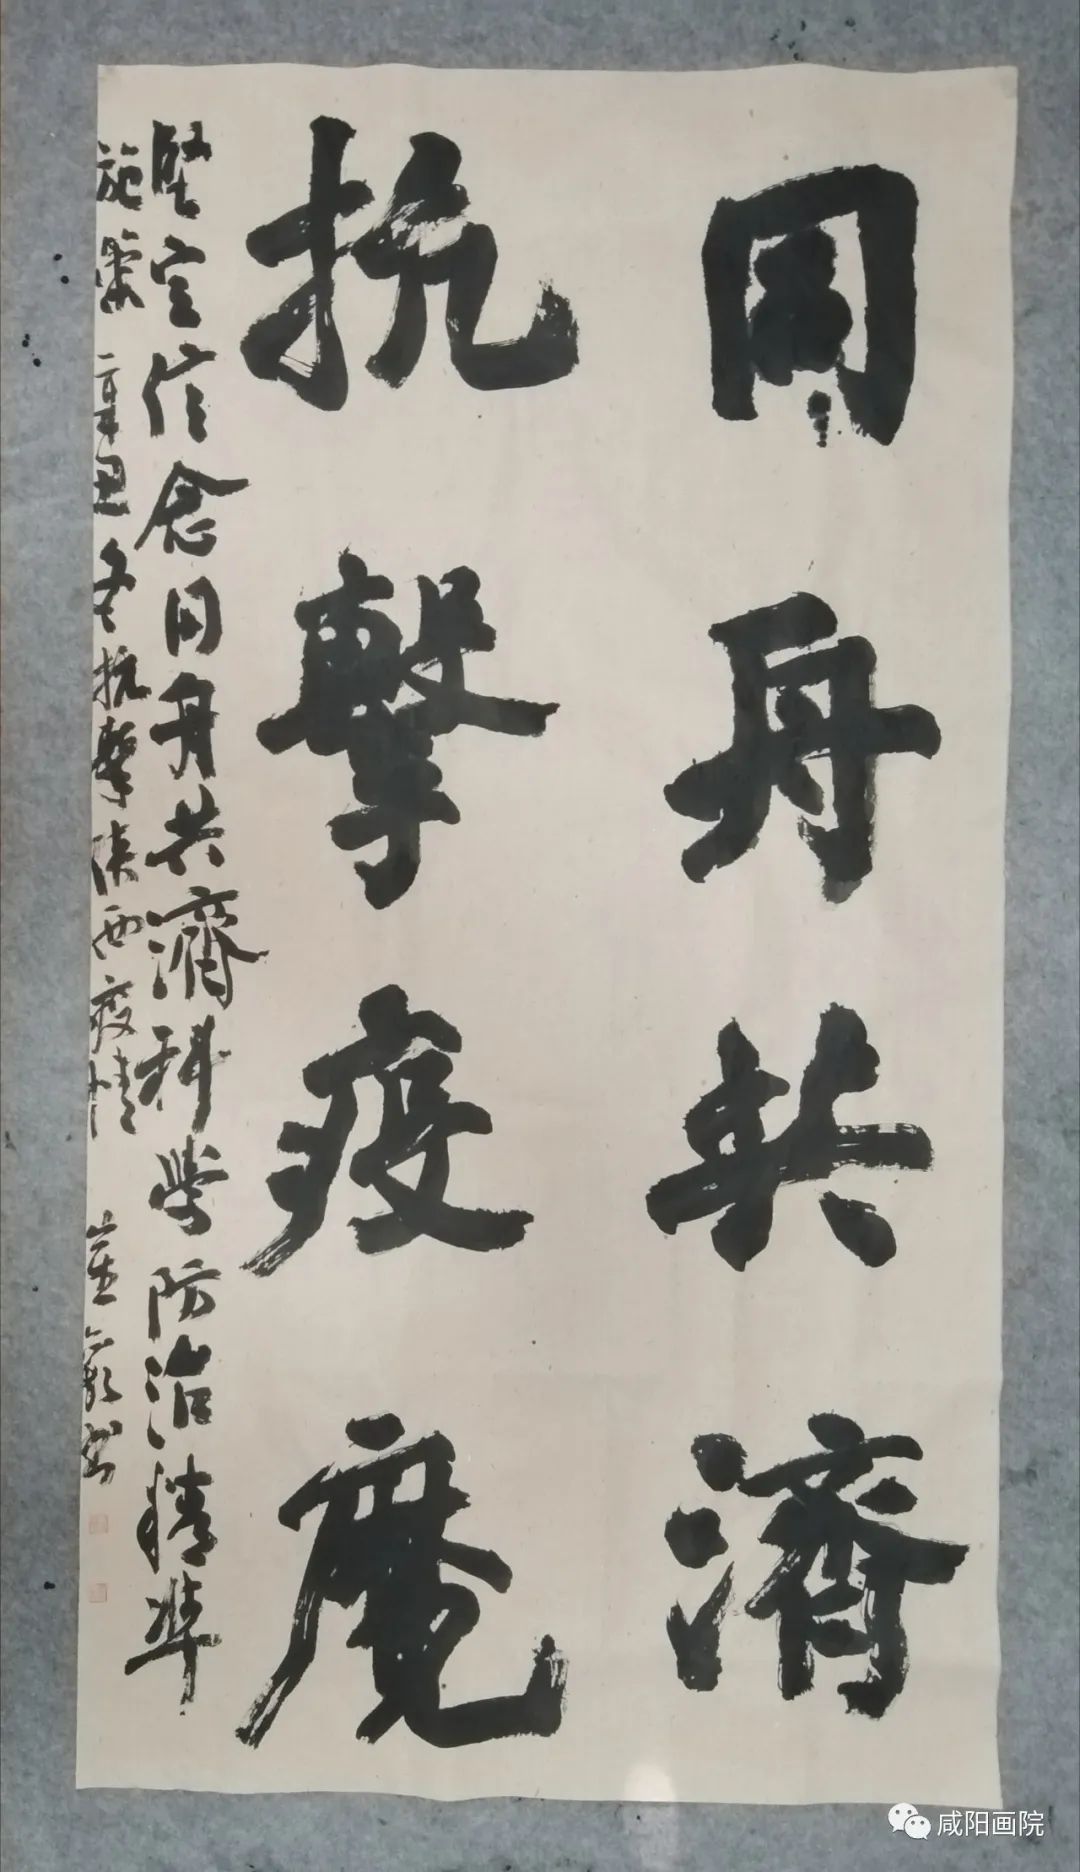 同舟共濟
抗擊疫魔
堅定信念同舟共濟科學防治精準
施策 辛丑冬抗擊陝西疫情
咸阳画院